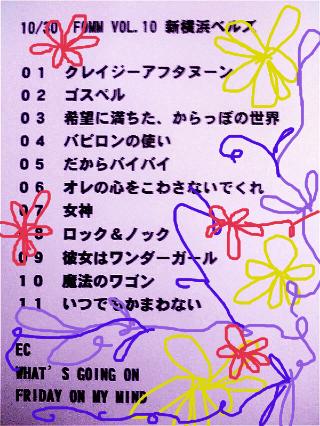 10/30 FOMM VOL.10 新横浜ベルズ
01 クレイジーアフタヌーン
02 ゴスペル
03 希望に満ちた、からっぽの世界
04 バビロンの使い
05 だからバイバイ
06 オレの心をこわさないでくれ
07 女神
08 ロック&ノック
09 彼女はワンダーガール
10 魔法のワゴン
11 いつでもかまわない
EC
WHAT'S GOING ON
FRIDAY ON MY MIND